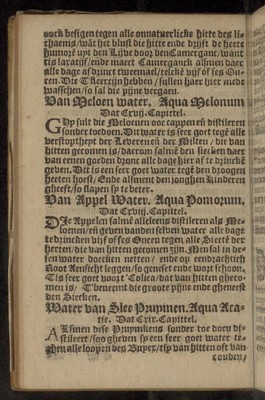 oock besigen tegen alle onnatuerlicke hitte des li-
chaems/wāt het blust die hitte ende drijft de heete
humorē upt den Lijve door den Camergank/want
tis laratijf/ende maect Camerganck alsmen daer
alle dage af drinct tweemael/telckē vijf of ses On-
cen. Die Tteerinch hebben / sullen haer hier mede
wasschen/so sal die pijne vergaen.
Van Meloen water. Aqua Melonum
Dat Crvij. Capittel.
GHy sult die Meloenen oec cappen eñ distileren
sonder toedoen. Dit water is seer goet tegē alle
verstoptheyt der Leveren eñ der Milten / die van
hitten geronnen is/daerom salmē den siecken daer
van eenen goeden dronc alle dage hier af te drinckē
geven. Dit is een seer goet water tegē den droogen
heeten hoest/ Ende alsment den jonghen kinderen
gheeft/so slapen sy te beter.
Van Appel Water. Aqua Pomorum.
Dat Crviij. Capittel.
DJe Appelen salmē alleleens distileren als Me-
loenen/eñ geven van den selven water alle dage
te drincken vijf of ses Oncen tegen alle Siecten der
herten/die van hitten geronnen zijn. Men sal in de-
sen water doecken netten / ende op eendrachtich
Root Aensicht leggen/so geneset ende wort schoon.
Tis seer goet voor t'Colica/dat van hitten gheron-
nen is/ T'beneemt die groote pijne ende gheneest
den Siecken.
Water van Slee Pruymen. Aqua Aca-
tie. Dat Crix. Capittel.
ALsmen dise Pruymkens sonder toe doen di-
stileert/soo gheven sy een seer goet water te-
ghen alle loopen des Buycx/tsy van hitten oft van
couden/